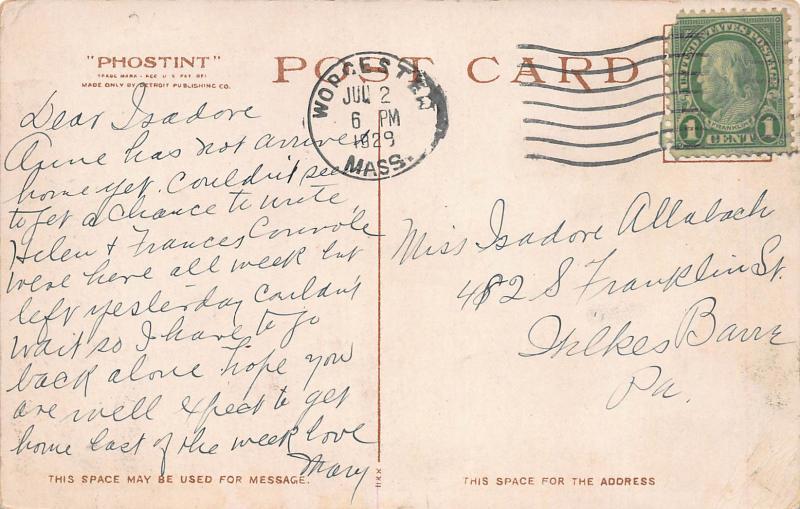 "PHOSTINT"
TRADE MARK - REG U S PAT OFF
MADE ONLY BY DETROIT PUBLISHING CO.
POST CARD
WORCESTER
JUL 2
6 PM
1929
MASS.
UNITED STATES POSTAGE
FRANKLIN
1 CENT 1
Dear Isadore
Anne has not arrived
home yet. Couldn't seem
to get a chance to write,
Helen & Frances
were here all week but
left yesterday couldn't
wait so I have to go
back alone hope you
are well expect to get
home last of the week love
Mary
Miss Isadore Allabach
482 S Franklin St.
Wilkes Barre
Pa.
THIS SPACE MAY BE USED FOR MESSAGE.
THIS SPACE FOR THE ADDRESS